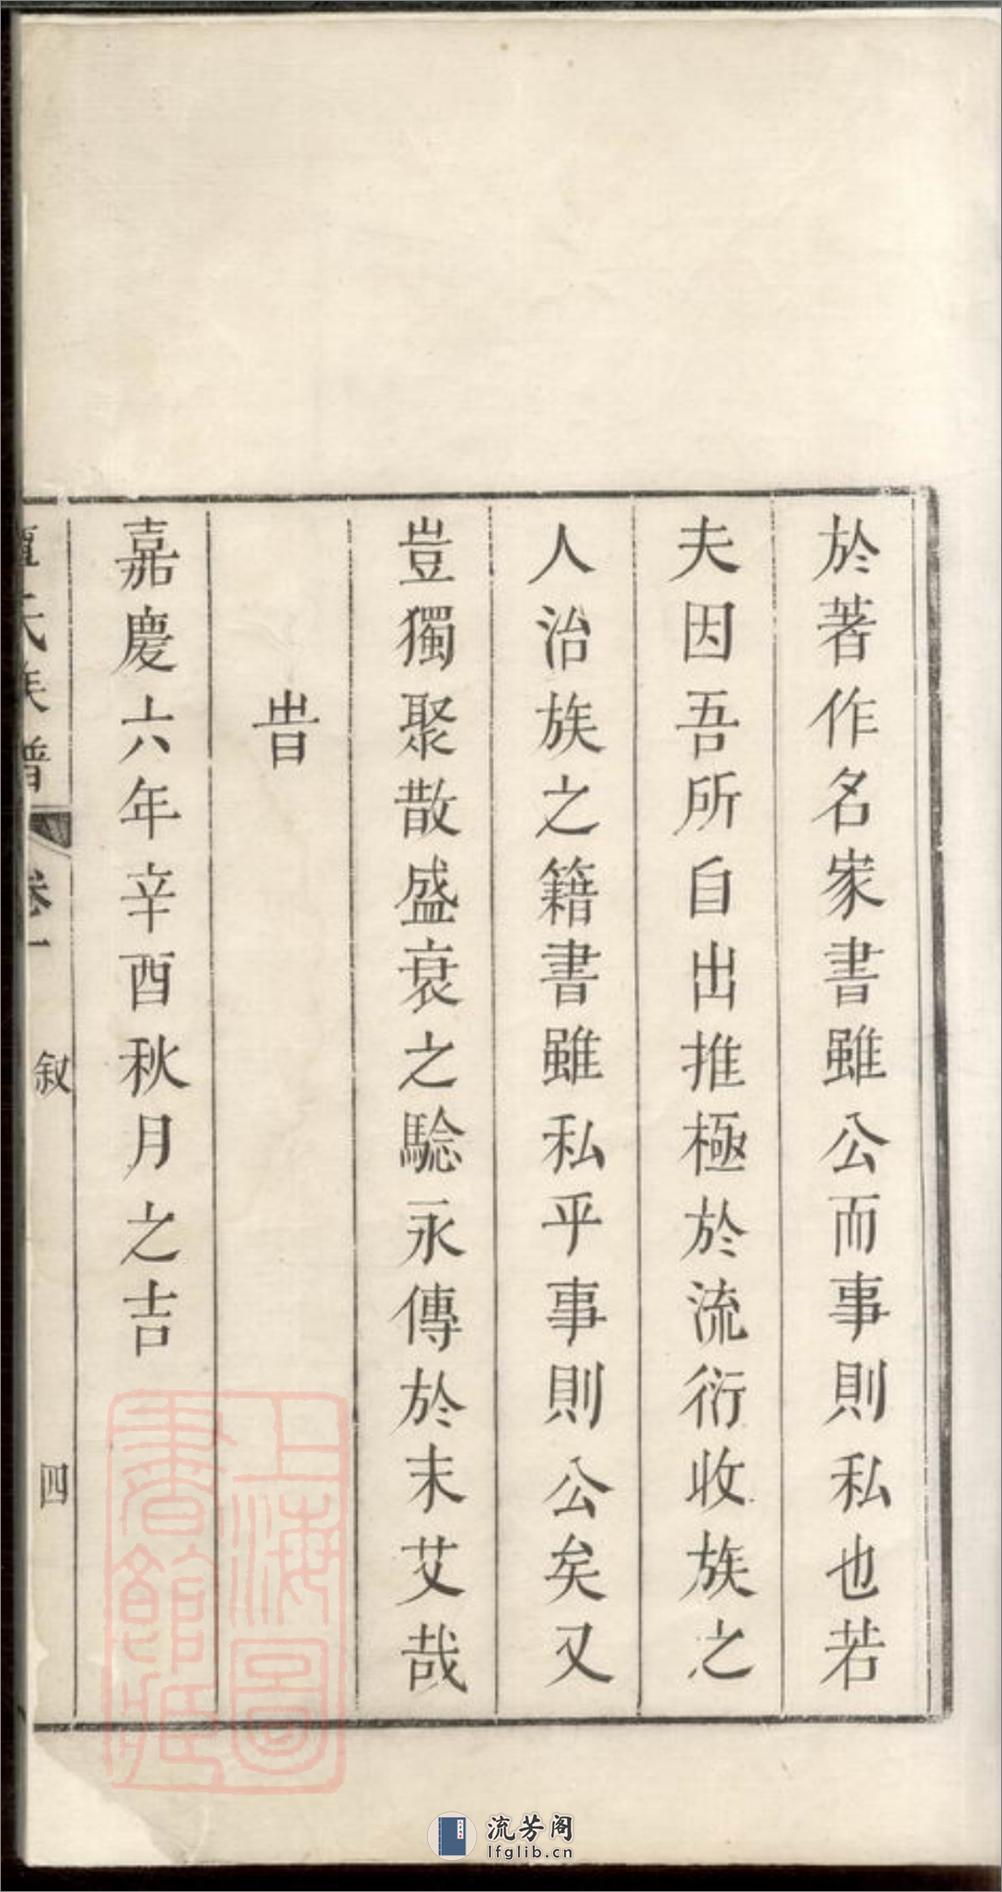 於著作名家書雖公而事則私也若
夫因吾所自出推極於流衍收族之
人治族之籍書雖私乎事則公矣又
豈獨聚散盛衰之騐永傳於末艾哉
旹
嘉慶六年辛酉秋月之吉
氏族譜
卷一
叙
四
上海圖書館藏
流芳阁
lfglib.cn